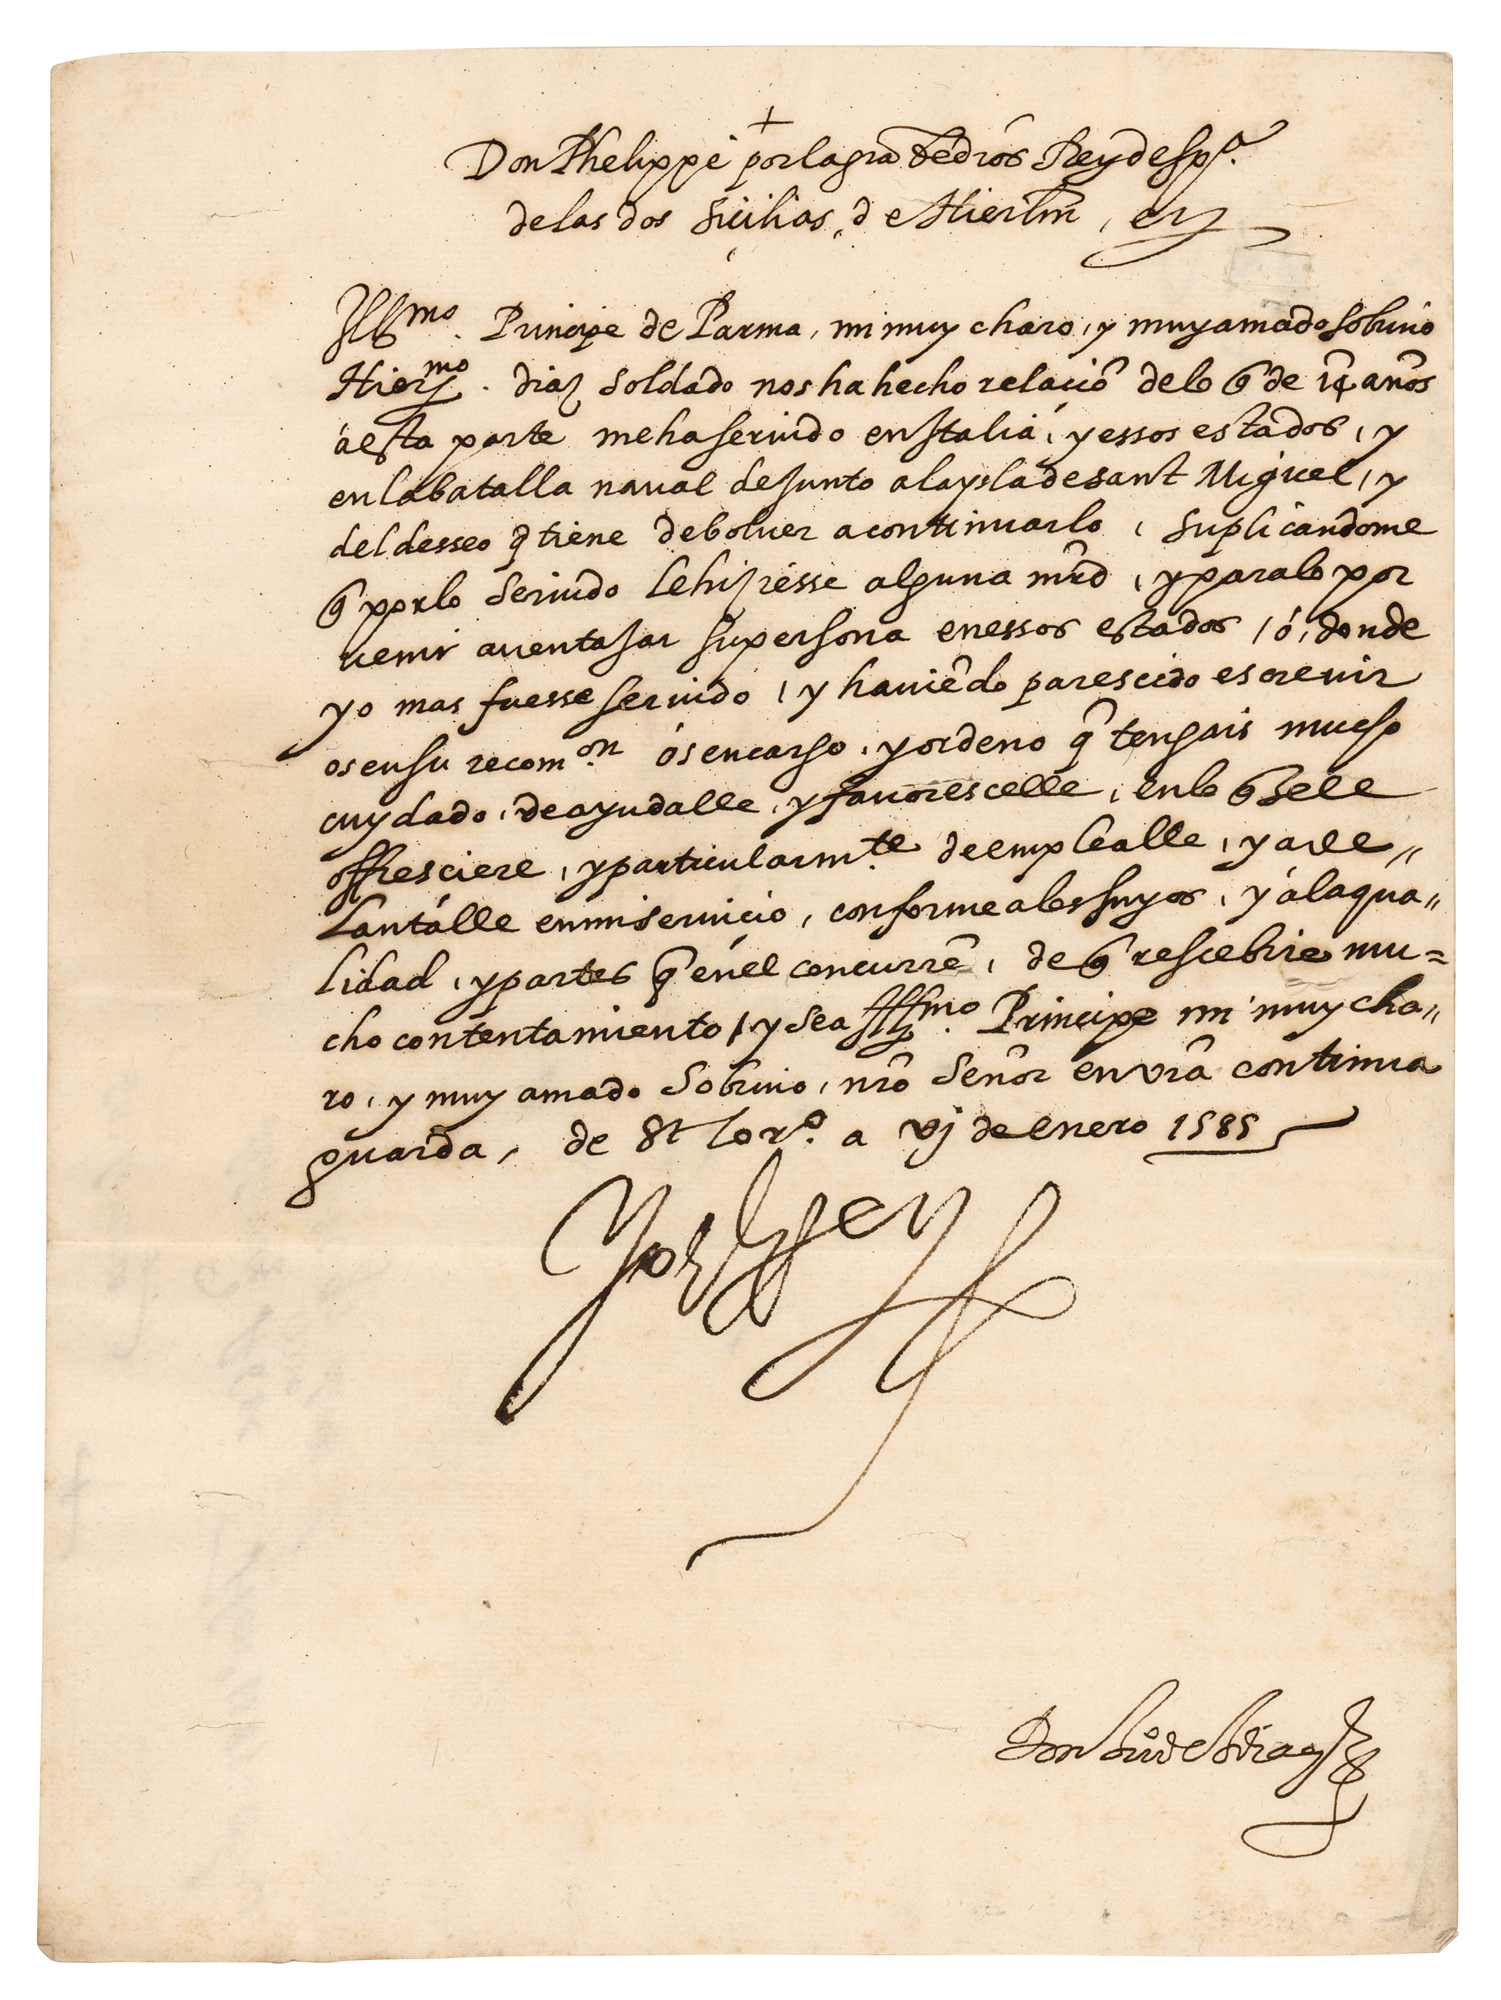 +
Don Phelippe por la gra de dios Rey de Spa.
de las dos Sicilias, de Hierlm, etz
Illmo. Principe de Parma, mi muy charo, y muy amado sobrino
Hiermo. diaz soldado nos ha hecho relació de lo q̃ de 14 años
a esta parte me ha seruido en Italia, y essos estados, y
en la batalla naual de junto a la ysla de sant Miguel, y
del desseo q̃ tiene de boluer a continuarlo, suplicandome
q̃ por lo seruido le hiziesse alguna mrd, y para lo por
uenir auentajar su persona en essos estados, ó, donde
yo mas fuesse seruido, y hauiẽdo parescido escreuir
os en su recomon. ós encargo, y ordeno q̃ tengais mucho
cuydado, de ayudalle, y fauorescelle, en lo q̃ se le
offresciere, y particularmte. de emplealle, y ade"
lantalle en mi seruicio, conforme a los suyos, y á la qua"
lidad, y partes q̃ en él concurrẽ, de q̃ rescebire mu=
cho contentamiento, y sea Illmo. Principe mi muy cha"
ro, y muy amado sobrino, nr̃o señor en vr̃a continua
guarda, de St Loro. a vj de enero 1585
Yo el Rey